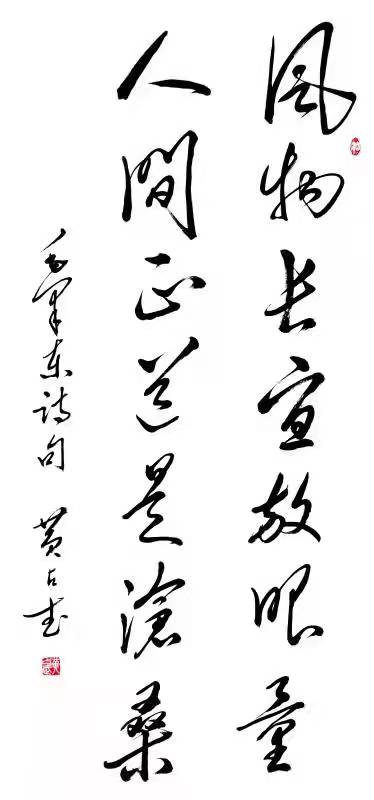 風物長宜放眼量
人間正道是滄桑
毛澤東詩句 黄占武